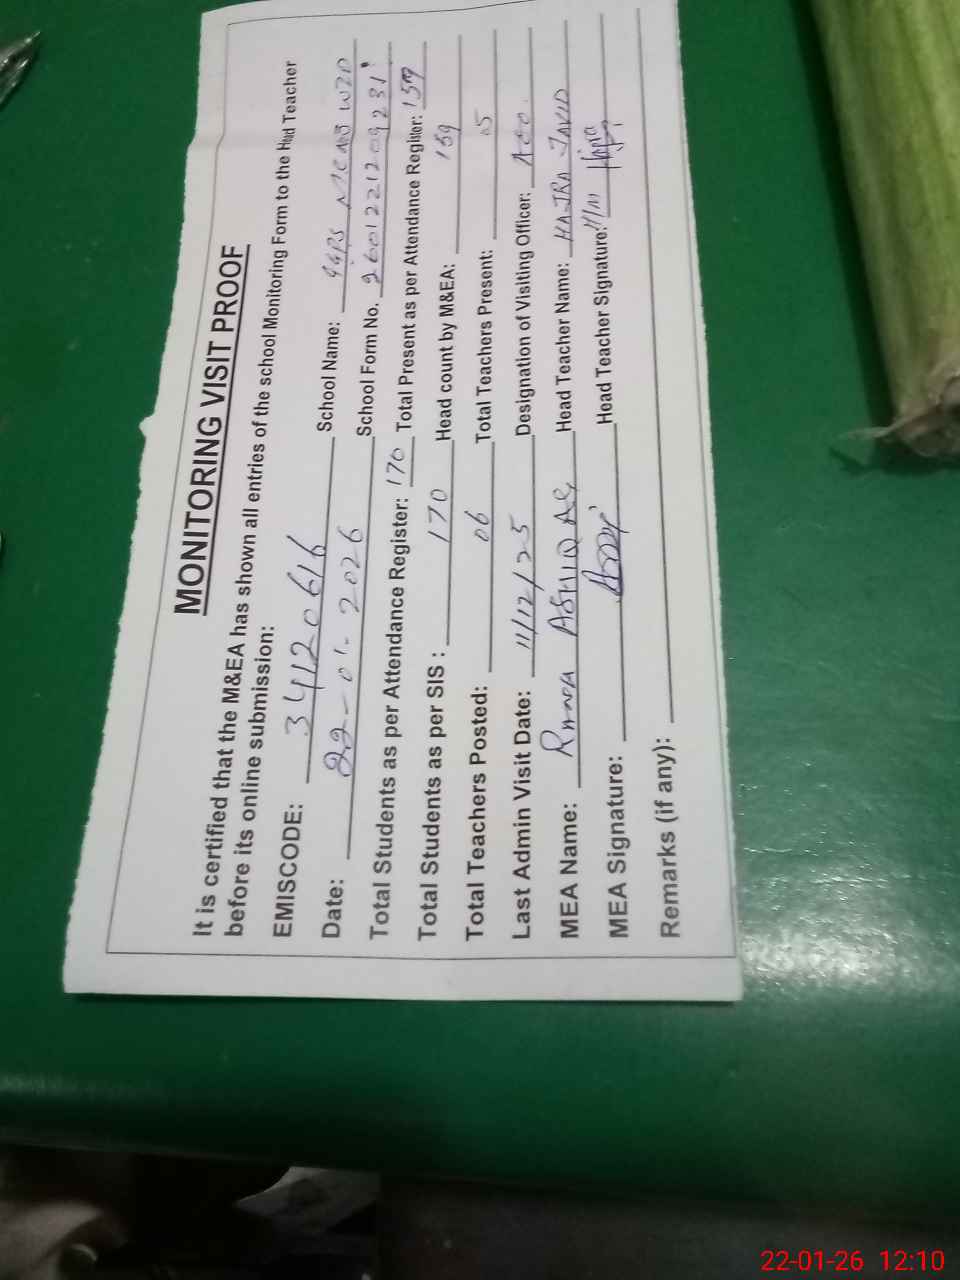 MONITORING VISIT PROOF
It is certified that the M&EA has shown all entries of the school Monitoring Form to the Head Teacher
before its online submission:
EMISCODE: 34120616 School Name: GGPS
Date: 22-01-2026 School Form No. 260122120923
Total Students as per Attendance Register: 170 Total Present as per Attendance Register: 159
Total Students as per SIS : 170 Head count by M&EA: 159
Total Teachers Posted: 06 Total Teachers Present: 05
Last Admin Visit Date: 11/12/25 Designation of Visiting Officer: AEO.
MEA Name: RANA ASHIQ ALI Head Teacher Name: HAJRA JAVID
MEA Signature: Head Teacher Signature: Hajra
Remarks (if any):
22-01-26 12:10